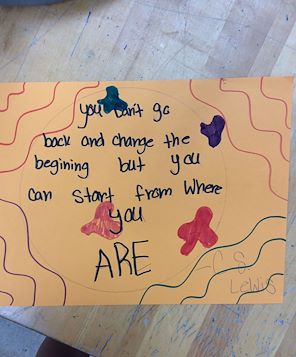 you can't go
back and change the
begining but you
can start from where
you
ARE
- C S
Lewis